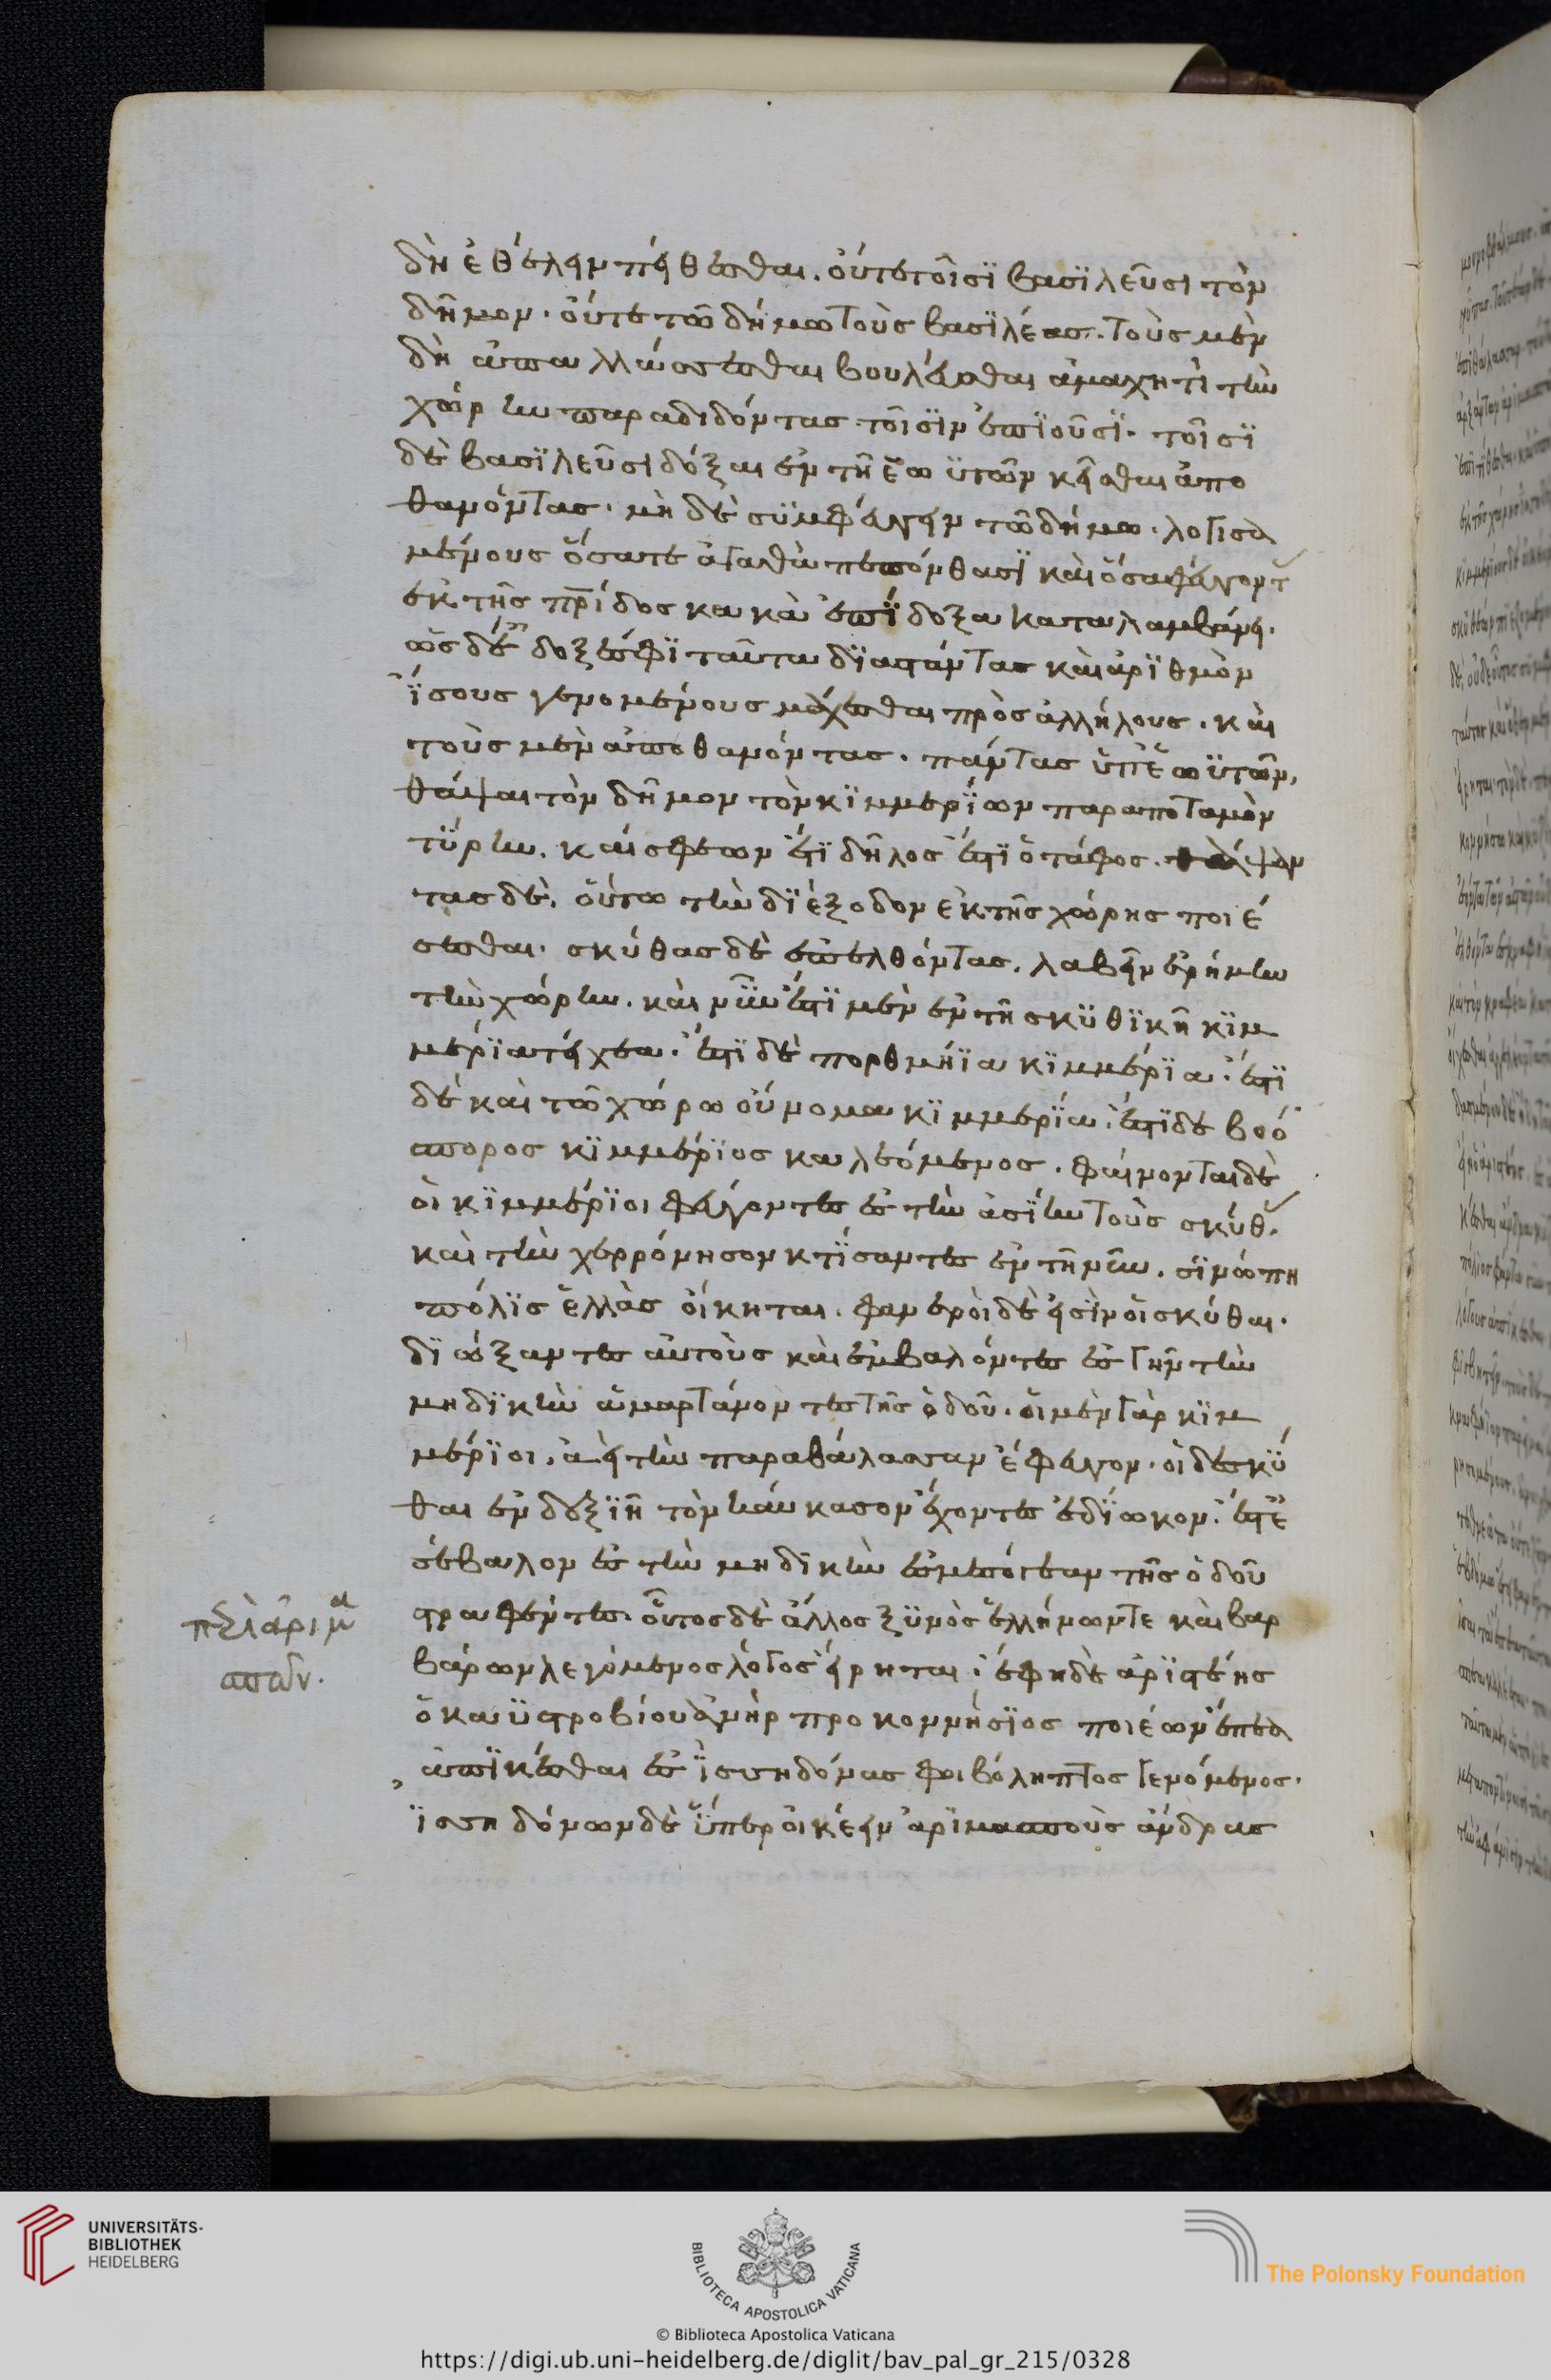 δὴ ἐθέλειν πείθεσθαι. οὔτε τοῖσϊ βασϊλεῦσι τὸν
δῆμον. οὔτε τῶ δήμω τοὺς βασϊλέας. τοὺς μὲν
δὴ ἀπαλλάσσεσθαι βουλέσθαι ἀμαχητὶ τὴν
χώρην παραδιδόντας τοῖσϊν ἐπϊοῦσϊ. τοῖσϊ
δὲ βασϊλεῦσι δόξαι ἐν τῆ ἑωϋτῶν κεῖσθαι ἀπο
θανόντας. μὴ δὲ συμφεύγειν τῶ δήμω. λογισα
μένους ὅσα τε ἀγαθὰ πεπόνθασϊ καὶ ὅσα φεύγοντ
ἐκ τῆς πρίδος κακὰ ἐπίδοξα καταλαμβάνει.
ὡς δὲ δόξαι σφϊ ταῦτα δϊαστάντας καὶ ἀρϊθμὸν
ἴσους γενομένους μάχεσθαι πρὸς ἀλλήλους. καὶ
τοὺς μὲν ἀποθανόντας. πάντας ὑπ' ἑωϋτῶν,
θάψαι τὸν δῆμον τὸν κϊμμερΐων παρα ποταμὸν
τύρην. καί σφεων ἔτϊ δῆλος ἐστϊ ὁ τάφος. θάψαν
τας δὲ, οὕτω τὴν δϊέξοδον ἐκ τῆς χώρης ποιέ
εσθαι. σκύθας δὲ ἐπελθόντας, λαβεῖν ἐρήμην
τὴν χώρην. καὶ νῦν ἔστϊ μὲν ἐν τῆ σκϋθϊκῆ κϊμ
μέρϊα τείχεα. ἔστϊ δὲ πορθμήϊα κϊμμέρϊα. ἔστϊ
δὲ καὶ τῶ χώρω οὔνομα κϊμμερΐη. ἔστϊ δὲ βόσ
πορος κϊμμέρϊος καλεόμενος. φαίνονται δὲ
οἱ κϊμμέρϊοι φεύγοντες ἐς τὴν ἀσΐην τοὺς σκύθ.
καὶ τὴν χερρόνησον κτΐσαντες ἐν τῆ νῦν. σϊνώπη
πόλϊς ἑλλὰς οἴκηται. φανεροὶ δὲ εἰσὶν οἱ σκύθαι.
δϊώξαντες αὐτοὺς καὶ ἐμβαλόντες ἐς γῆν τὴν
μηδϊκὴν ἁμαρτάνοντες τῆς ὁδοῦ. οἱ μὲν γὰρ κϊμ
μέρϊοι, ἀεὶ τὴν παραθάλασσαν ἔφευγον. οἱ δὲ σκύ
θαι ἐν δεξϊῆ τὸν καύκασον ἔχοντες ἐδΐωκον. ἐς ὃ ἐ
σέβαλον ἐς τὴν μηδικὴν ἐς μεσόγεαν τῆς ὁδοῦ
τραφθέντες. οὗτος δὲ ἄλλος ξϋνὸς ἑλλήνων τε καὶ βαρ
βάρων λεγόμενος λόγος εἴρηται. ἔφη δὲ ἀρϊστέης
ὁ καϋστροβίου ἀνὴρ προκοννήσϊος ποιέων ἔπεα
ἀπϊκέσθαι ἐς ἰσσηδόνας φοιβόληπτος γενόμενος.
ἰσσηδόνων δὲ ὕπερ οἰκέειν ἀρϊμασποὺς ἄνδρας
πεὶ ἀριμα
σπῶν.
UNIVERSITÄTS-
BIBLIOTHEK
HEIDELBERG
BIBLIOTECA APOSTOLICA VATICANA
The Polonsky Foundation
© Biblioteca Apostolica Vaticana
https://digi.ub.uni-heidelberg.de/diglit/bav_pal_gr_215/0328